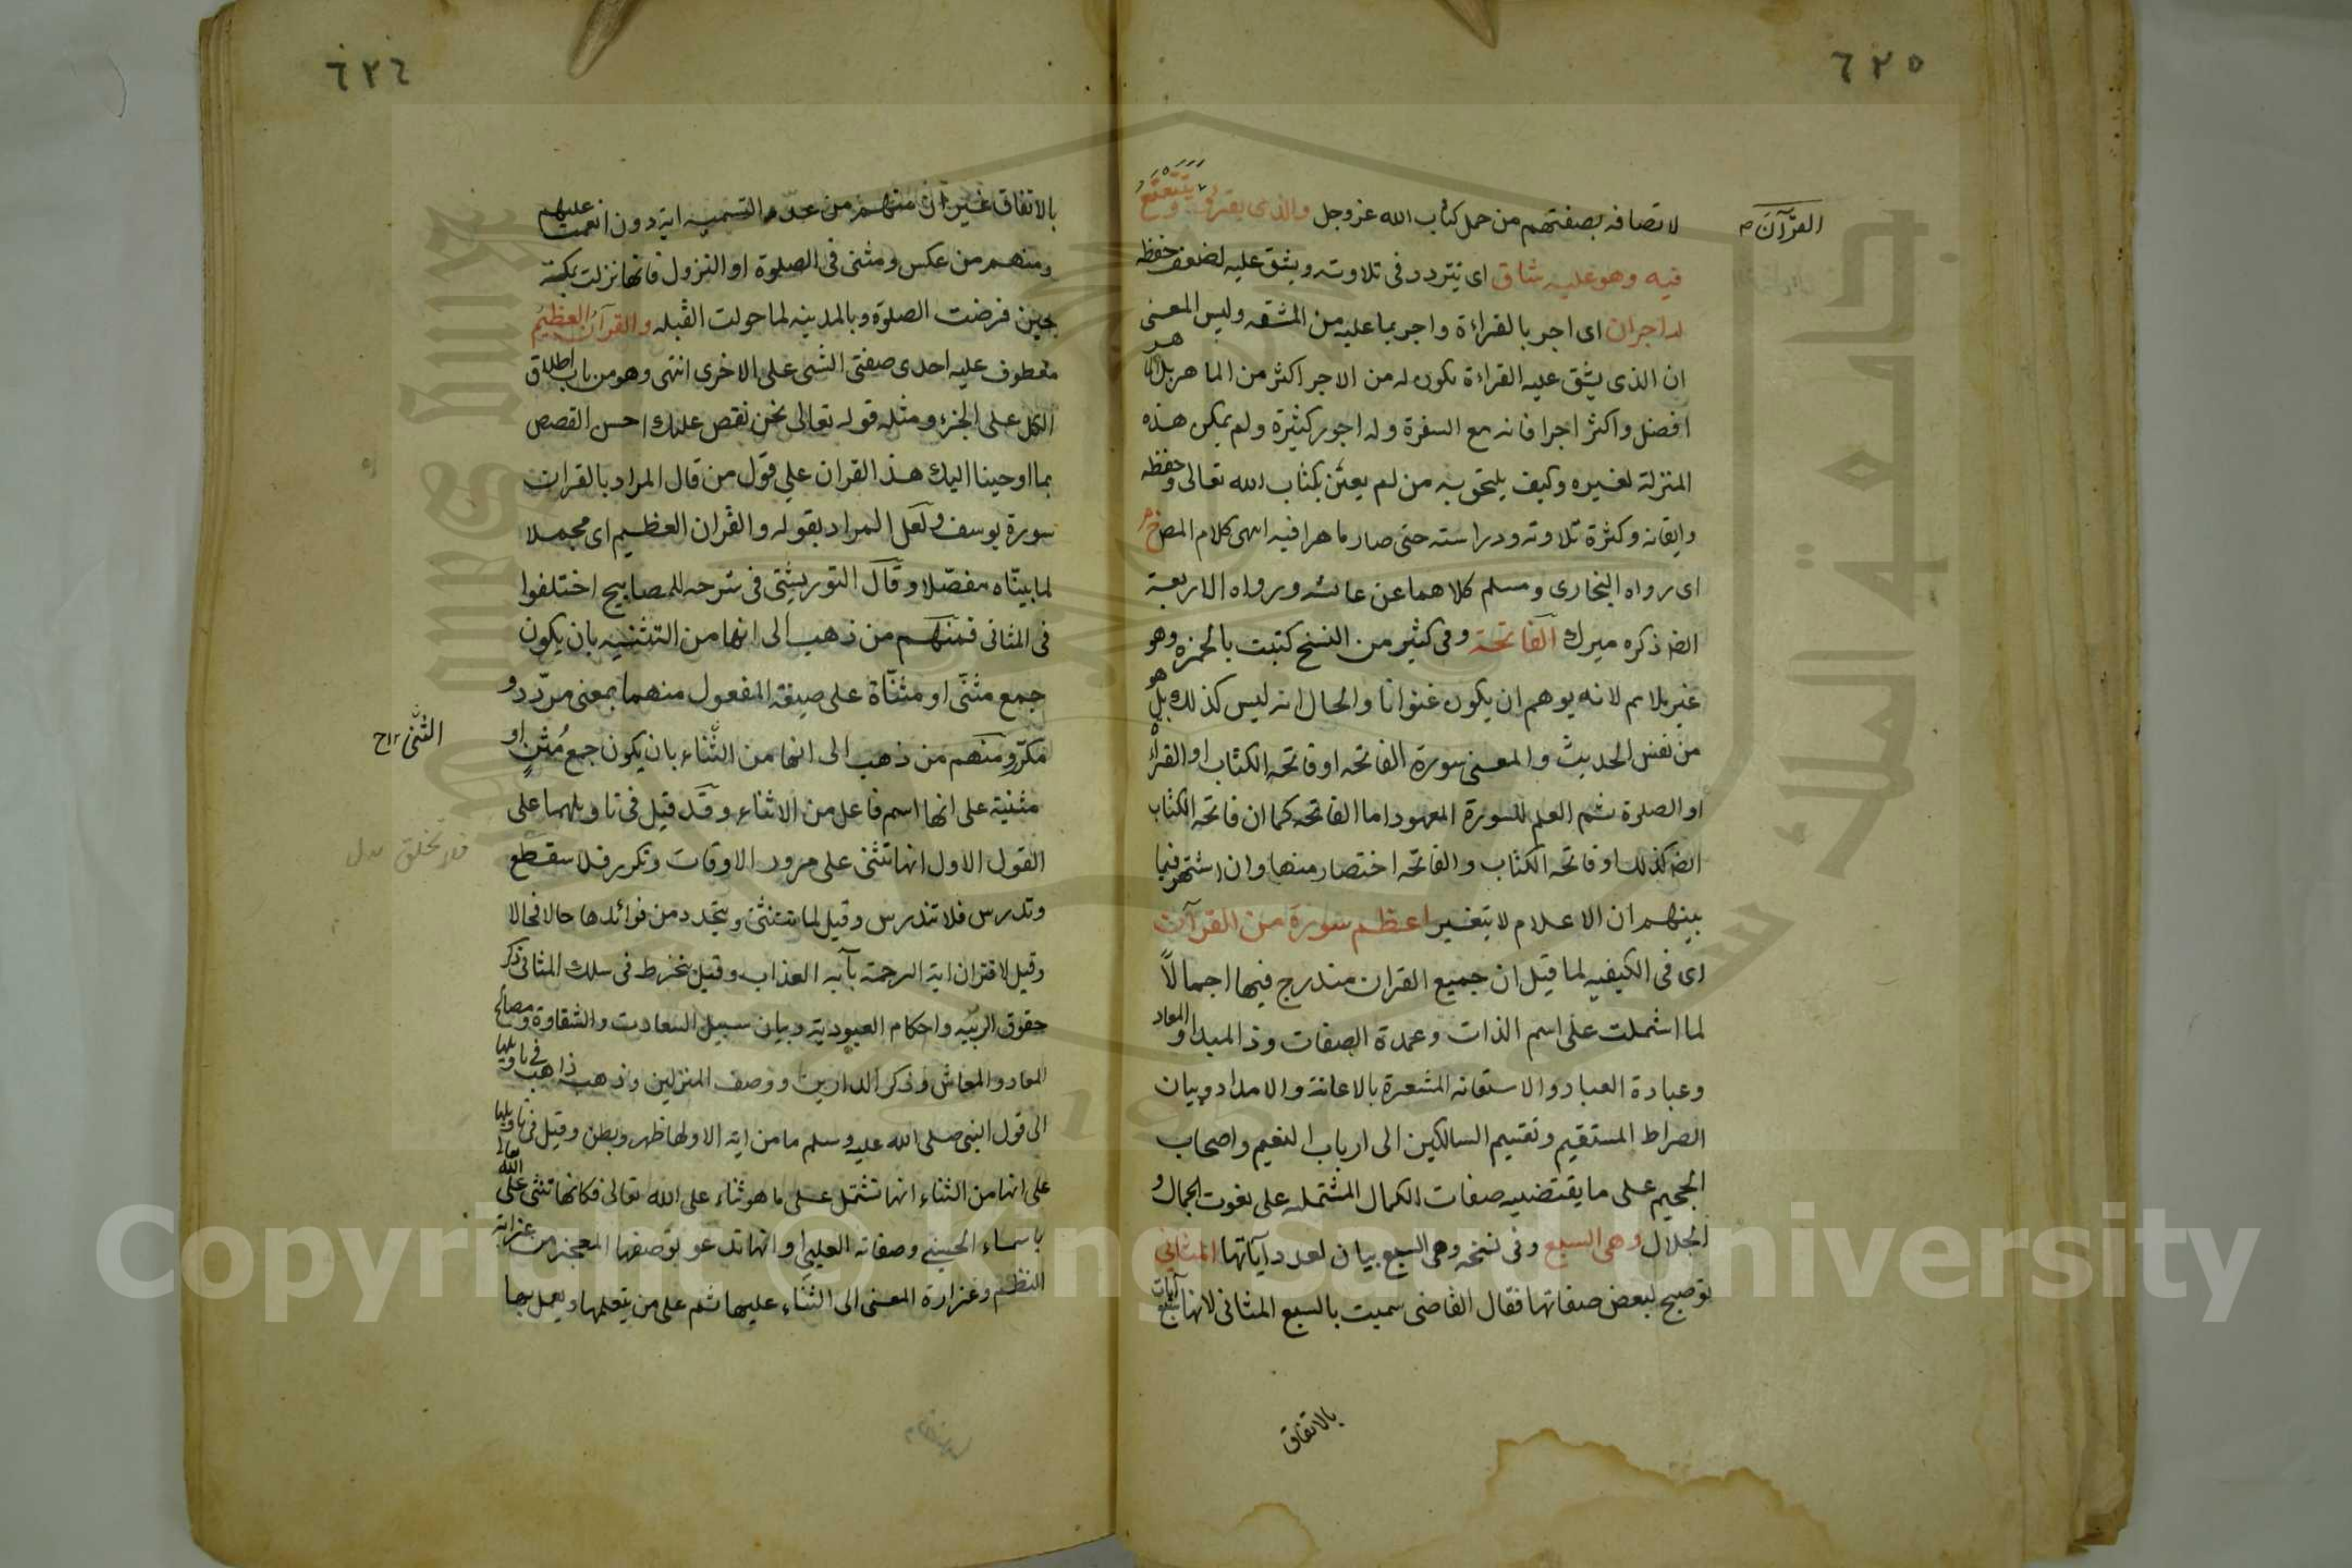 ٦٢٥
القرآن
لاتصافه بصفتهم من حمل كتاب الله عزوجل والذى يقرؤه ويتتعتع
فيه وهو عليه شاق اى يتردد فى تلاوته ويشق عليه لضعف حفظه
له اجران اى اجر بالقراءة واجر بما عليه من المشقه وليس المعنى
ان الذى يشق عليه القراءة يكون له من الاجر اكثر من الماهر بل الماهر
افضل واكثر اجرا فانه مع السفرة وله اجور كثيرة ولم يكن هذه
المنزلة لغيره وكيف يلتحق به من لم يعتن بكتاب الله تعالى وحفظه
وايقانه وكثرة تلاوته ودراسته حتى صار ماهرا فيه انتهى كلام المص خ م
اى رواه البخارى ومسلم كلاهما عن عائشه ورواه الاربعة
ايضا ذكره ميرك الفاتحة وفى كثير من النسخ كتبت بالحمزه وهو
غير ملايم لانه يوهم ان يكون عنوانا والحال انه ليس كذلك بل هو
من نفس الحديث والمعنى سورة الفاتحه او فاتحه الكتاب او القراءة
او الصلوة ثم العلم للسورة المعهود اما الفاتحه كما ان فاتحه الكتاب
ايضا كذلك او فاتحه الكتاب والفاتحه اختصار منها وان اشتهر فيما
بينهم ان الاعلام لا يتغير اعظم سورة من القرآن
اى فى الكيفيه لما قيل ان جميع القران مندرج فيها اجمالاً
لما اشتملت على اسم الذات وعمدة الصفات وذ المبدا والمعاد
وعبادة العباد والاستعانه المشعرة بالاعانة والامداد وبيان
الصراط المستقيم وتقسيم السالكين الى ارباب النعيم واصحاب
الجحيم على ما يقتضيه صفات الكمال المشتمله على نعوت الجمال و
الجلال وهى السبع وفى نسخه وهى السبع بيان لعدد آياتها المثانى
توضيح لبعض صفاتها فقال القاضى سميت بالسبع المثانى لانها سبع آيات
بالاتفاق
٦٢٦
بالاتفاق غير ان منهم من عد التسميه اية دون انعمت عليهم
ومنهم من عكس ومثنى فى الصلوة او النزول فانها نزلت بمكة
حين فرضت الصلوة وبالمدينه لما حولت القبله والقرآن العظيم
معطوف عليه احدى صفتى الشى على الاخرى انتهى وهو من باب اطلاق
الكل على الجزء ومثله قوله تعالى نحن نقص عليك احسن القصص
بما اوحينا اليك هذ القران على قول من قال المراد بالقران
سورة يوسف ولعل المراد بقوله والقران العظيم اى مجملا
لما بيناه مفصلا وقال التوربشتى فى شرحه للمصابيح اختلفوا
فى المثانى فمنهم من ذهب الى انها من التثنيه بان يكون
جمع مثنّى او مثنّاة على صيغة المفعول منهما بمعنى مردد و
مكرر ومنهم من ذهب الى انها من الثناء بان يكون جمع مُثنٍ او
مثنية على انها اسم فاعل من الاثناء وقد قيل فى تاويلهما على
القول الاول انها تثنى على مرور الاوقات وتكرر فلا تنقطع
وتدرس فلا تندرس وقيل لما يتثنى ويتجدد من فوائدها حالا فحالا
وقيل لاقتران اية الرحمة بآية العذاب وقيل ينخرط فى سلك المثانى ذكر
حقوق الربيه واحكام العبودية وبيان سبيل السعادت والشقاوة ومصالح
المعاد والمعاش وذكر الدارين ووصف المنزلين وذهب ذاهب فى تاويلها
الى قول النبى صلى الله عليه وسلم ما من اية الا ولها ظهر وبطن وقيل فى تاويلها
على انها من الثناء انها تشتمل على ما هو ثناء على الله تعالى فكانها تثنى على الله
باسماء الحسنى وصفاته العليى او انها تدعو بوصفها المعجز من غرابة
النظم وغزارة المعنى الى الثناء عليها ثم على من يتعلمها ويعمل بها
فلا تخلق